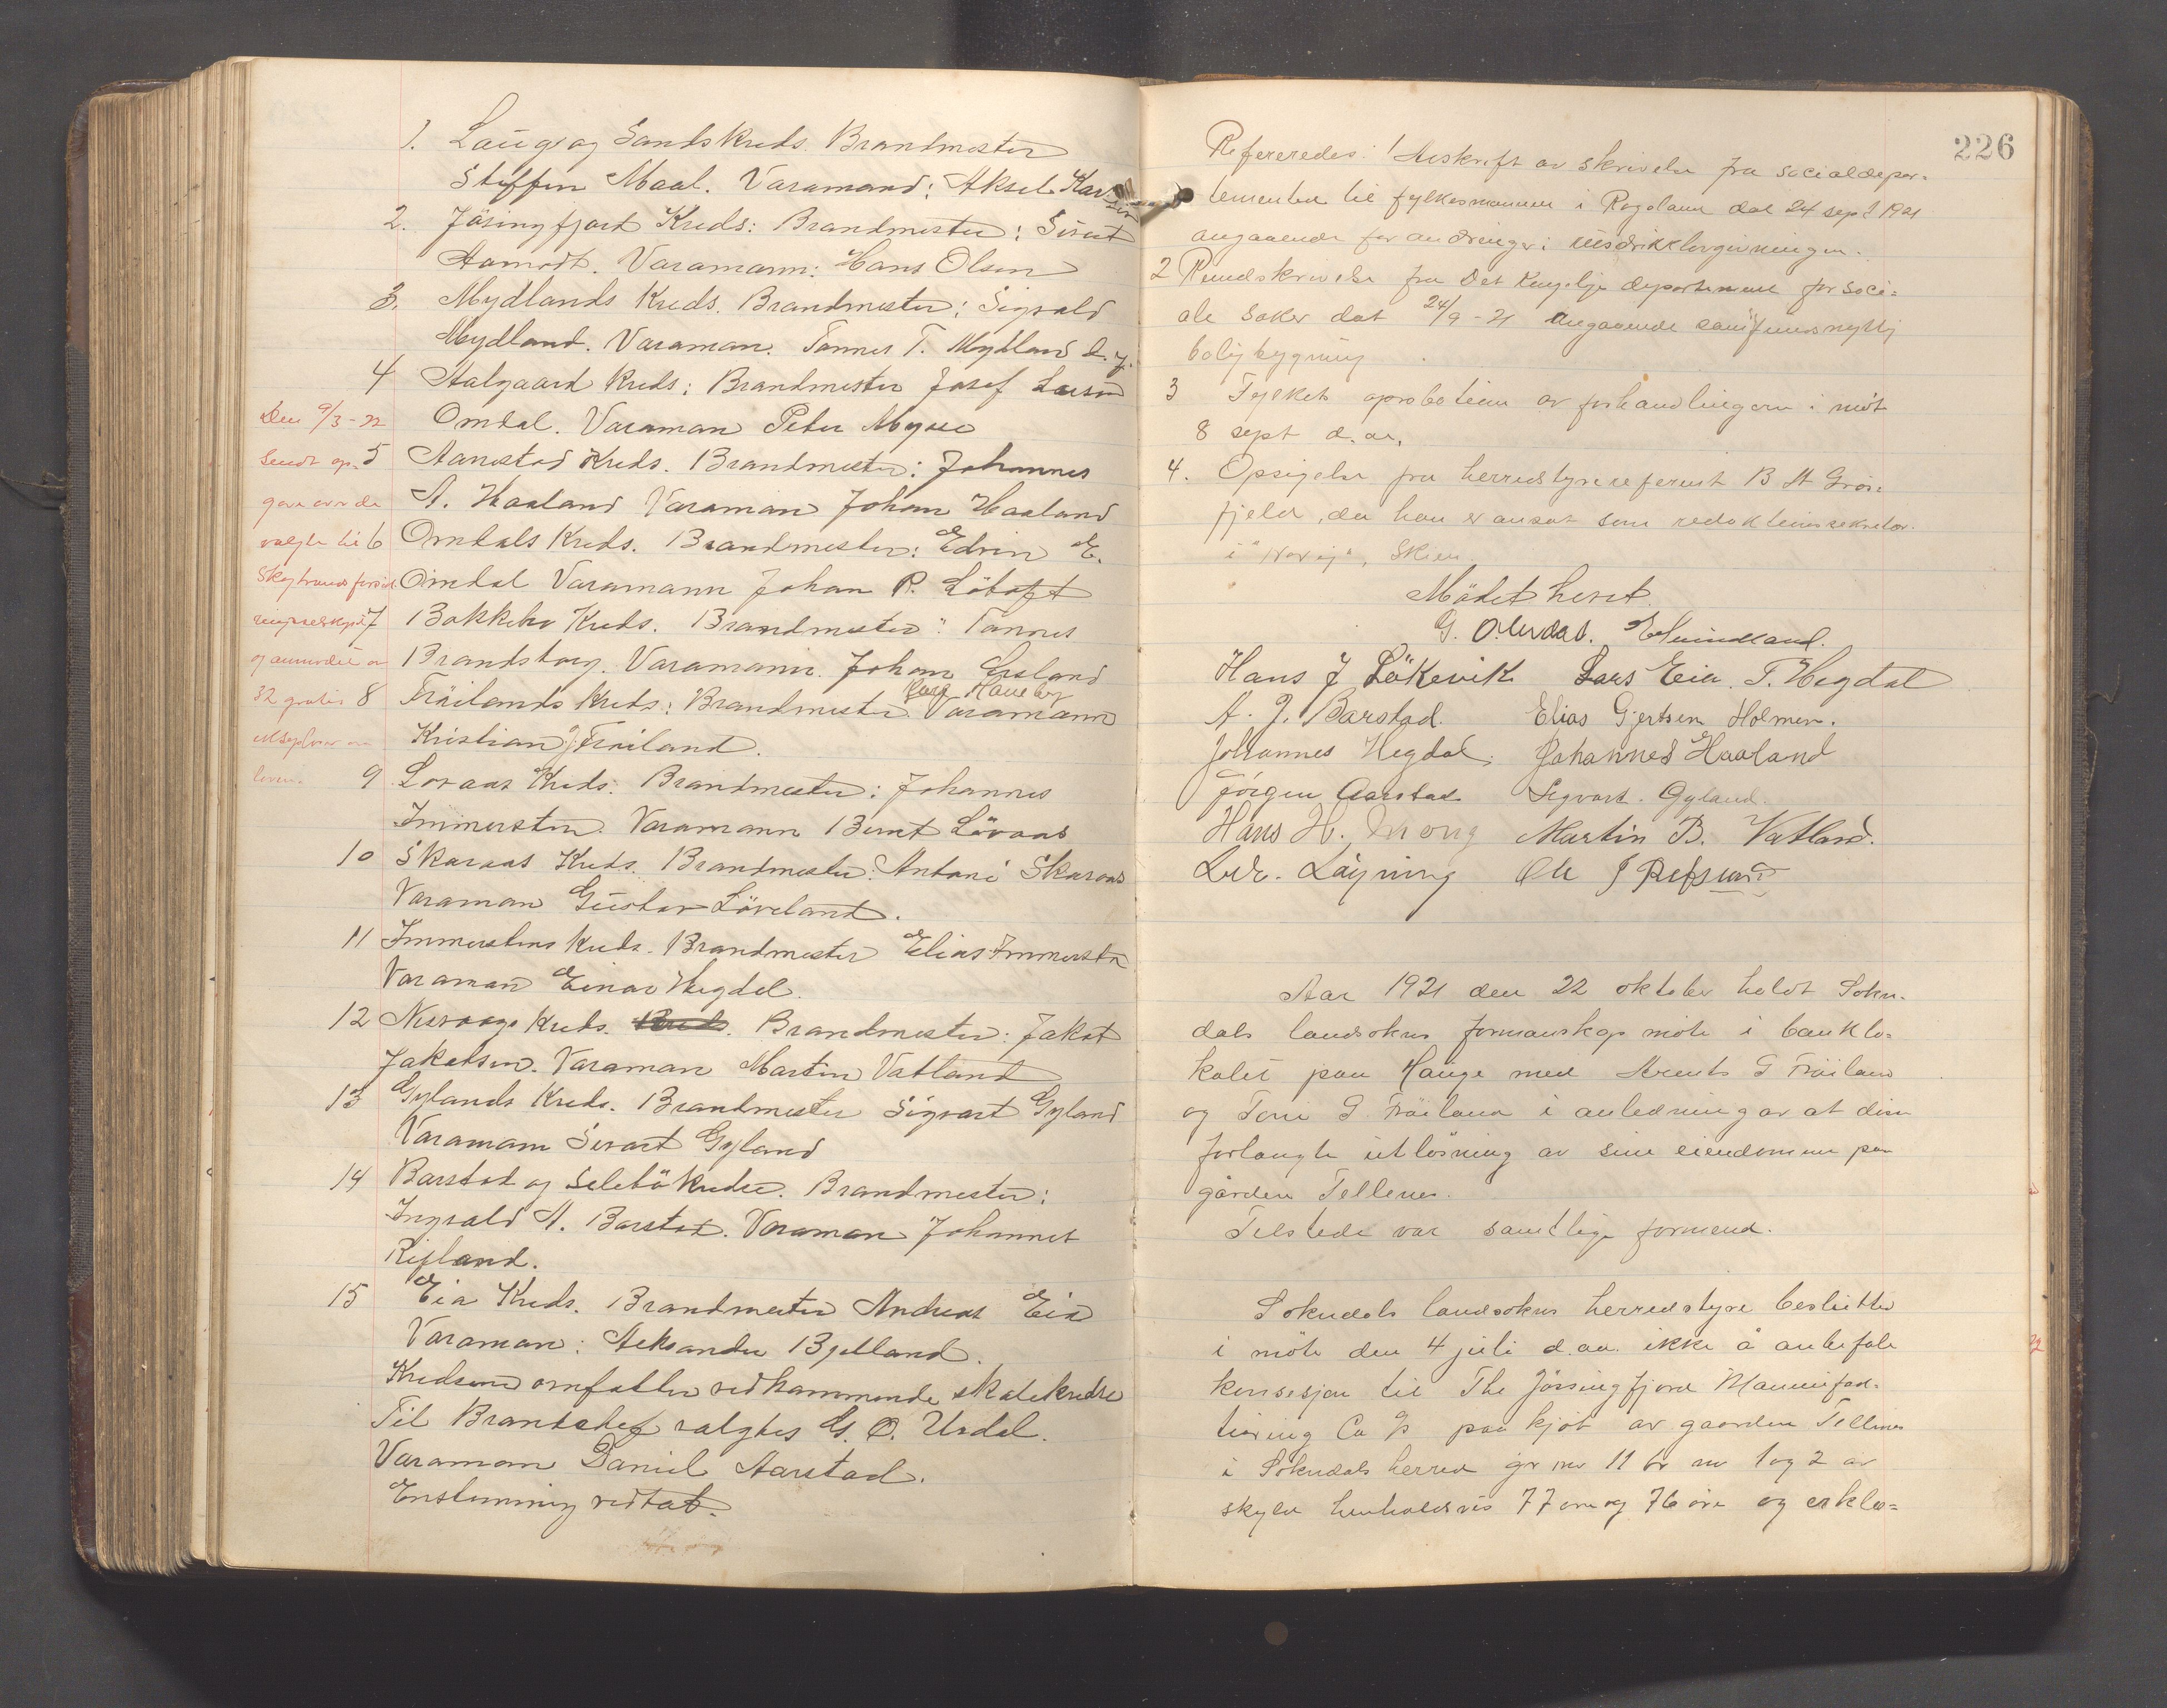 1. Hauge og Sands Kreds. Brandmester
Steffen Maal. Varamand: Aksel Karlsen
2. Jösingfjord Kreds: Brandmester: Sivert
Aamodt. Varamann: Hans Olsen
3. Mydlands Kreds. Brandmester: Sigvald
Mydland. Varaman. Tønnes T. Mydland d.y.
4 Aalgaard Kreds: Brandmester Josef Larsen
Omdal. Varaman Peter Mysse
5 Aarrestad Kreds. Brandmester: Johannes
A. Haaland Varaman Johan Haaland
6 Omdals Kreds. Brandmester: Edvin E.
Omdal Varamann Johan R. Lötoft
7 Bakkebø Kreds. Brandmester: Tønnes
Brandsberg. Varamann. Johan Eesland
8 Fröilands Kreds: Brandmester Varamann
Kristian J. Fröiland.
9 Lovaas Kreds: Brandmester: Johannes
Immerstein. Varamann Bernt Lövaas
10 Skaraas Kreds. Brandmester: Antoni Skaraas
Varaman Gustav Löveland.
11 Immersteins Kreds. Brandmester Elias Immerstein
Varaman Einar Hegdal.
12 Nesvaags Kreds. Kreds. Brandmester: Jakob
Jakobsen. Varaman Martin Vatland
13 Gylands Kreds. Brandmester Sigvart Gyland
Varamann Sivart Gyland
14 Barstad og Selebö Kredse. Brandmester:
Ingvald A. Barstad. Varaman Johannes
Refsland.
15 Eia Kreds. Brandmester Andreas Eia
Varaman: Aleksander Bjelland.
Kredsene omfatter vedkommende skolekredse
Til Brandchef valgtes G. O. Urdal.
Varamann Daniel Aarstad.
Enstemmig vedtat.
Den 9/3-22
sendt op-
gave over de
valgte til
Skogbrandsforsik
ringsselskapet
og anmodet om
32 gratis
eksemplarer av
loven.
226
Refereredes: 1 Avskrift av skrivelse fra socialdepar-
tementet til fylkesmannen i Rogaland dat 24 sept 1921
angaaende forandringer i rusdriklovgivningen.
2 Rundskrivelse fra Det kongelige departement for soci=
ale saker dat 24/9-21 angaaende samfundsnyttig
boligbygning
3 Fylkets aprobation av forhandlingerne i møt
8 sept d. aa.
4. Opsigelse fra herredstyrereferent B A Grøs-
fjeld, da han er ansat som redaktionssekretær
i "Norig", Skien
Mödet hevet.
G. O. Urdal. E Svindland.
Hans J Lökevik Lars Eia. T. Hegdal
A. J. Barstad. Elias Gjertsen Holmen.
Johannes Hegdal. Johannes Haaland
Jörgen Aarstad Sigvart. Gyland.
Hans H. Mong Martin B. Vatland.
Ldv. Løyning Ole J Refsland
Aar 1921 den 22 oktober holdt Sokn-
dals landsokns formanskap møte i banklo-
kalet paa Hauge med Arents G Fröiland
og Toni G. Fröiland i anledning av at disse
forlangte utlösning av sine eiendomme paa
gården Tellenes.
Tilstede var samtlige formend.
Sokndals landsokns herredstyre besluttet
i möte den 4 juli d.aa. ikke å anbefale
konsesjon til The Jössingfjord Manufac-
turing Co A/S paa kjøb av gaarden Tellnes
i Sokndals herred gr nr 11 br nr 1 og 2 av
skyld henholdsvis 77 øre og 76 øre og erklæ=